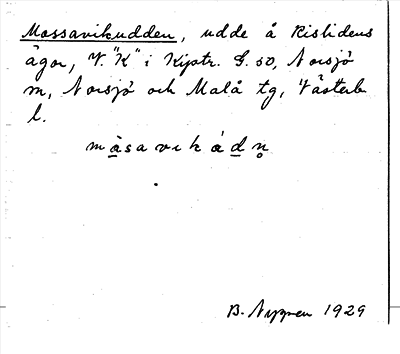 Mossavikudden, udde å Rislidens
ägor, V. "K" i Kyrktr. S. so, Norsjö
m, Norsjö och Malå tg, Västerb
l.
må̱savikåd̲n̥
B. Nygren 1929